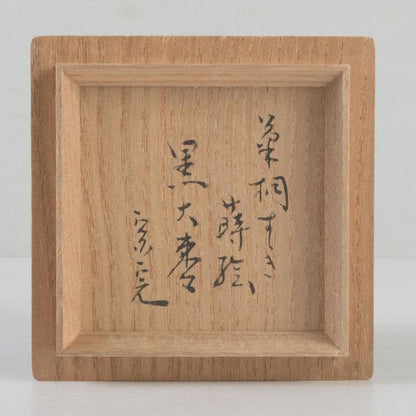 菊桐すき
蒔絵
黒大棗